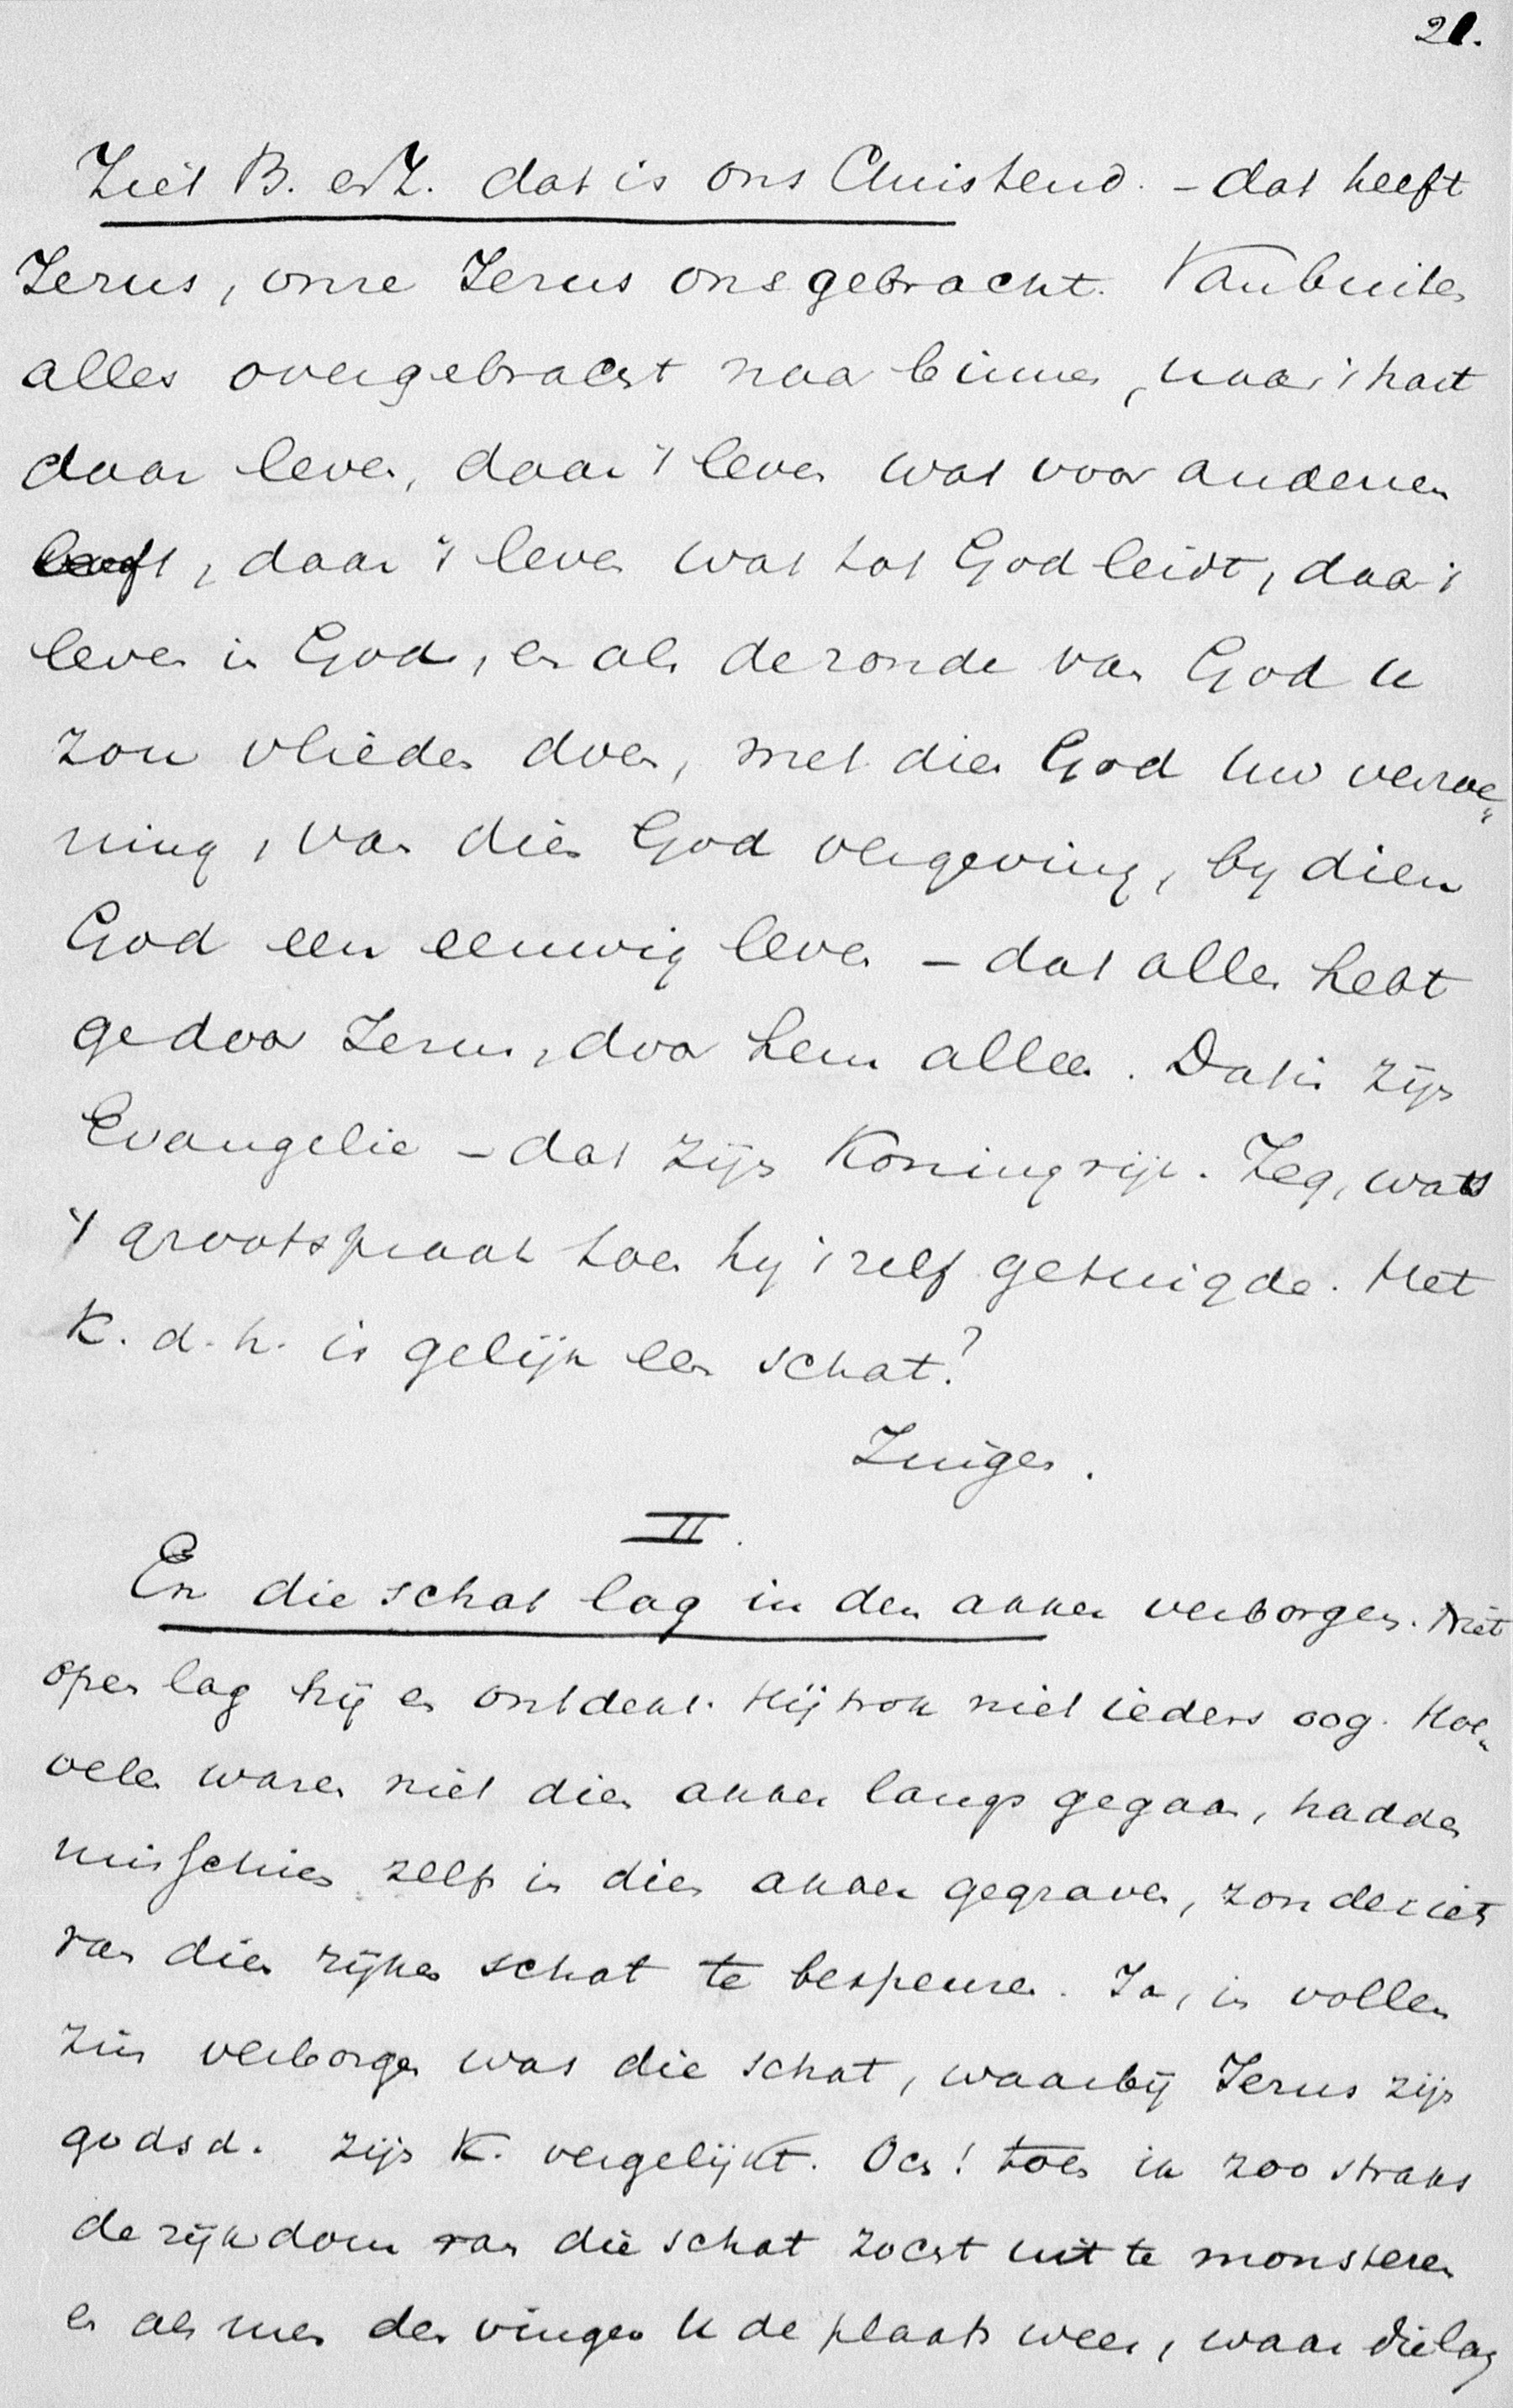 21.
Ziet B. en Z. dat is ons Christend. – dat heeft
Jezus, onze Jezus ons gebracht. Van buiten
alles overgebracht naar binnen, naar 't hart
daar leven, daar 't leven wat voor anderen
leeft, daar 't leven wat tot God leidt, daar 't
leven in God, en als de zonde van God u
zou vlieden doen, met dien God uw verzoe„
ning, van dien God vergeving, by dien
God een eeuwig leven – dat alles hebt
ge door Jezus, door hem alleen. Dat is zijn
Evangelie – dat zijn Koningrijk. Zeg, was
't grootspraak toen hy 't zelf getuigde. Het
K. d. h. is gelijk een schat?
Zingen.
II.
En die schat lag in den akker verborgen. Niet
open lag hij en ontdekt. Hij trok niet ieders oog. Hoe„
velen waren niet dien akker langs gegaan, hadden
misschien zelfs in dien akker gegraven, zonder iets
van dien rijken schat te bespeuren. Ja, in vollen
zin verborgen was die schat, waarbij Jezus zijn
godsd. zijn K. vergelijkt. Och! toen ik zoo straks
de rijkdom van die schat zocht uit te monsteren
en als met den vinger u de plaats wees, waar die lag